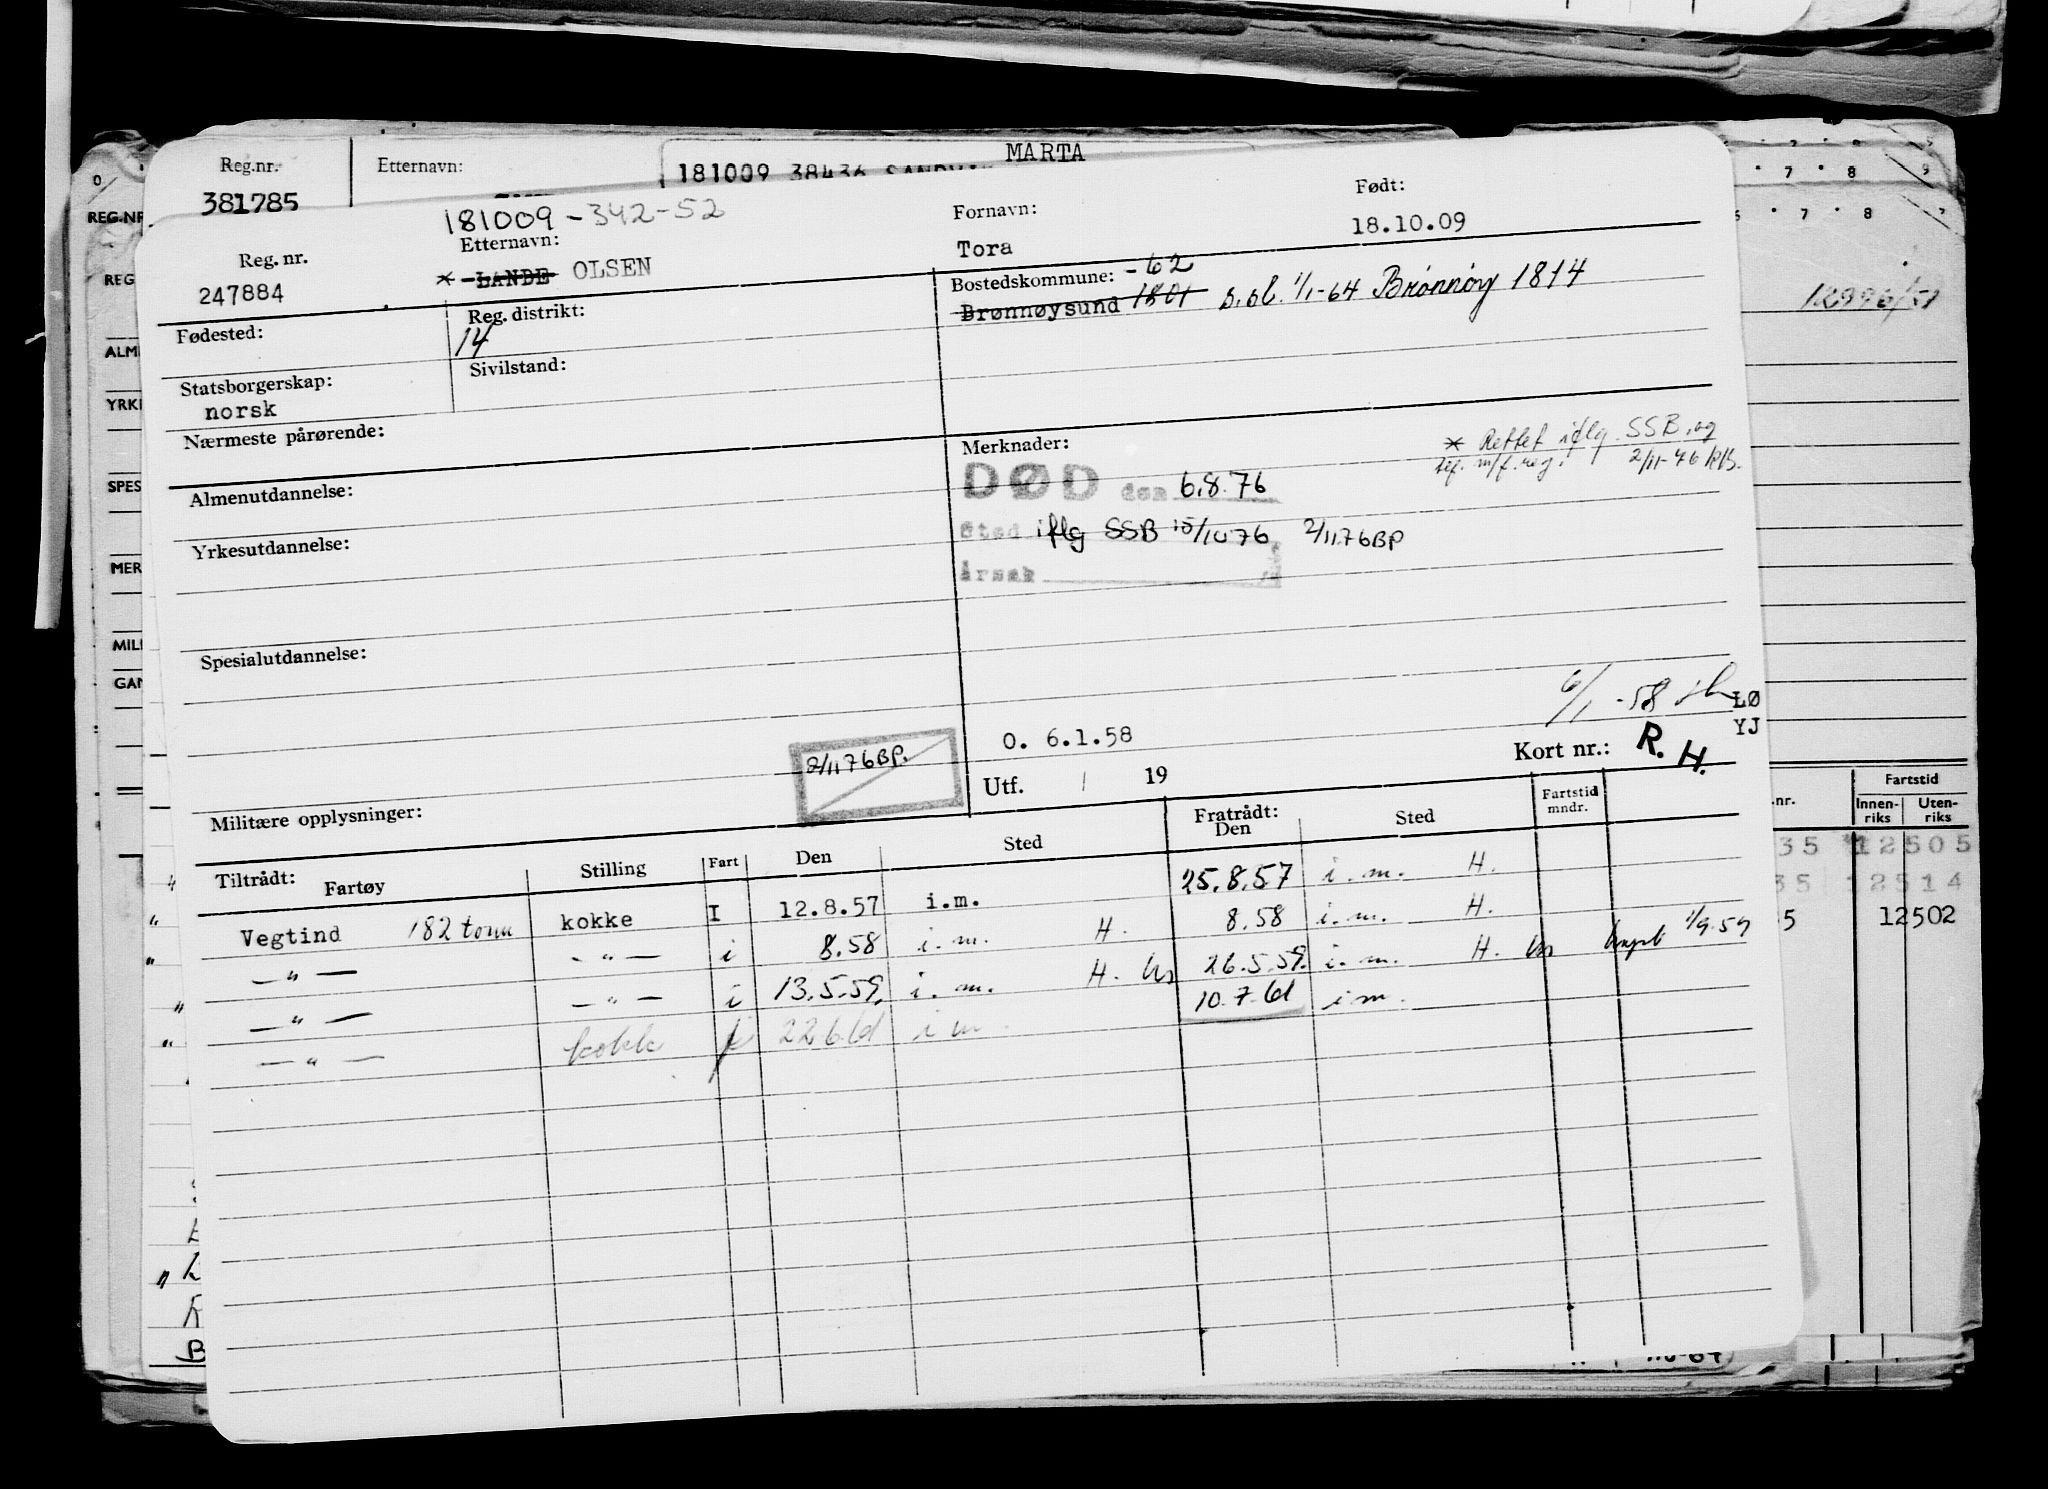 Reg.nr. Etternavn: MARTA
381785 181009 38436
REG.NR
181009-342-52
Reg. nr. Etternavn: Fornavn: Født:
247884 * LANDE OLSEN Tora 18.10.09
Fødested: Reg. distrikt: Bostedskommune: -62
14 Brønnøysund 1801 s.bl. 1/1-64 Brønnøy 1814
12996/51
Statsborgerskap: Sivilstand:
norsk
Nærmeste pårørende: Merknader: * Rettet iflg. SSB. og
tlf. m/f.reg. 2/11-76
Almenutdannelse: DØD den 6.8.76
Yrkesutdannelse: Sted iflg SSB 15/10 76 2/11.76 BP
Årsak
Spesialutdannelse:
6/1-58 LØ
O. 6.1.58 YJ
2/11 76 BP. Utf. / 19 Kort nr.: R. H.
Militære opplysninger:
Fratrådt: Fartstid
Tiltrådt: Fartøy Stilling Fart Den Sted Den Sted mndr.
Vegtind 182 tonn kokke I 12.8.57 i.m. 25.8.57 i.m. H.
— " — — " — i 8.58 i.m. H. 8.58 i.m. H.
— " — — " — i 13.5.59. i.m. H. 26.5.59. i.m. H. 1/9.59
— " — kokk i 22.6.61 i m. 10.7.61 i m.
nr. Fartstid
Innen-riks Uten-riks
35 12505
35 12514
5 12502